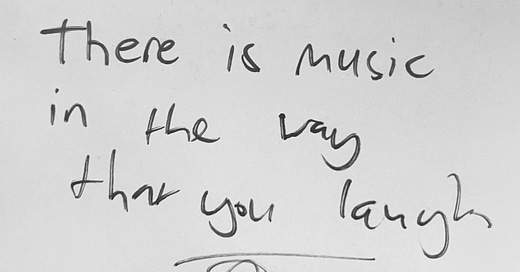 There is music
in the way
that you laugh